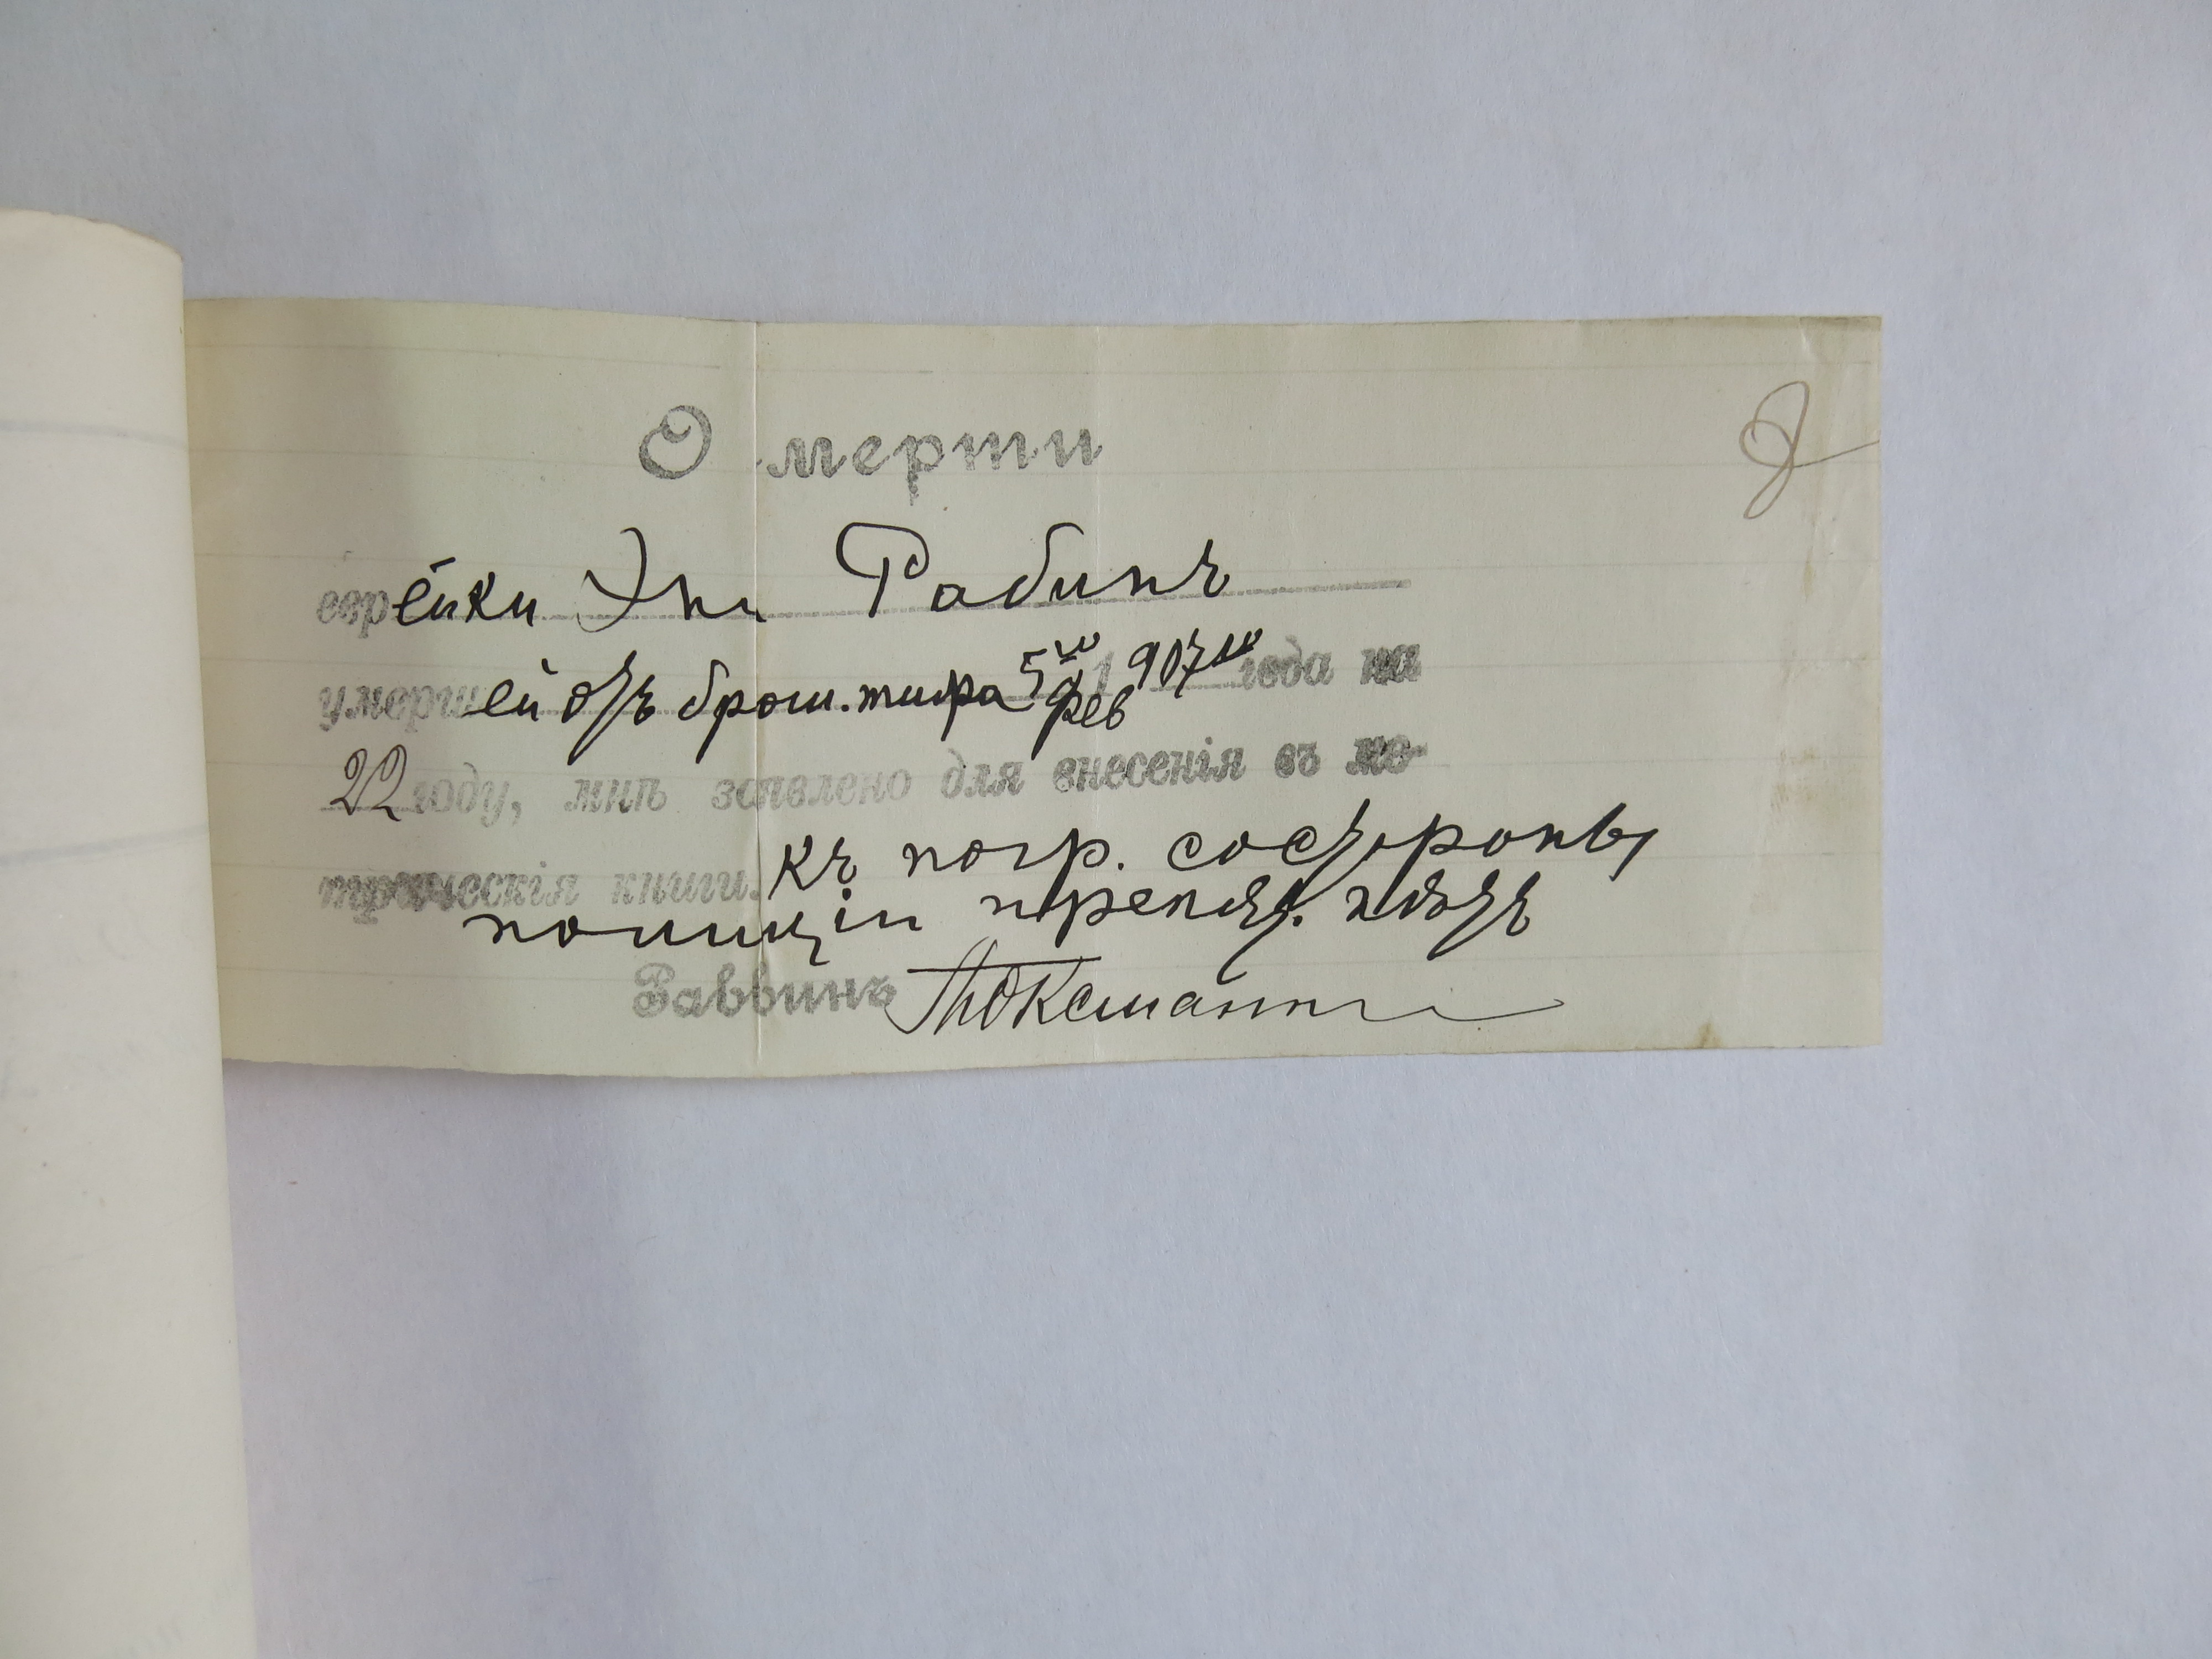 О мерти
еврейки Эни Рабинъ
умершей отъ брюш. тифа 5го фев 1907го года на
22 году, мнѣ заявлено для внесенія въ ме-
трическія книги. къ погр. со стороны
полиціи препят. нѣтъ
Раввинъ